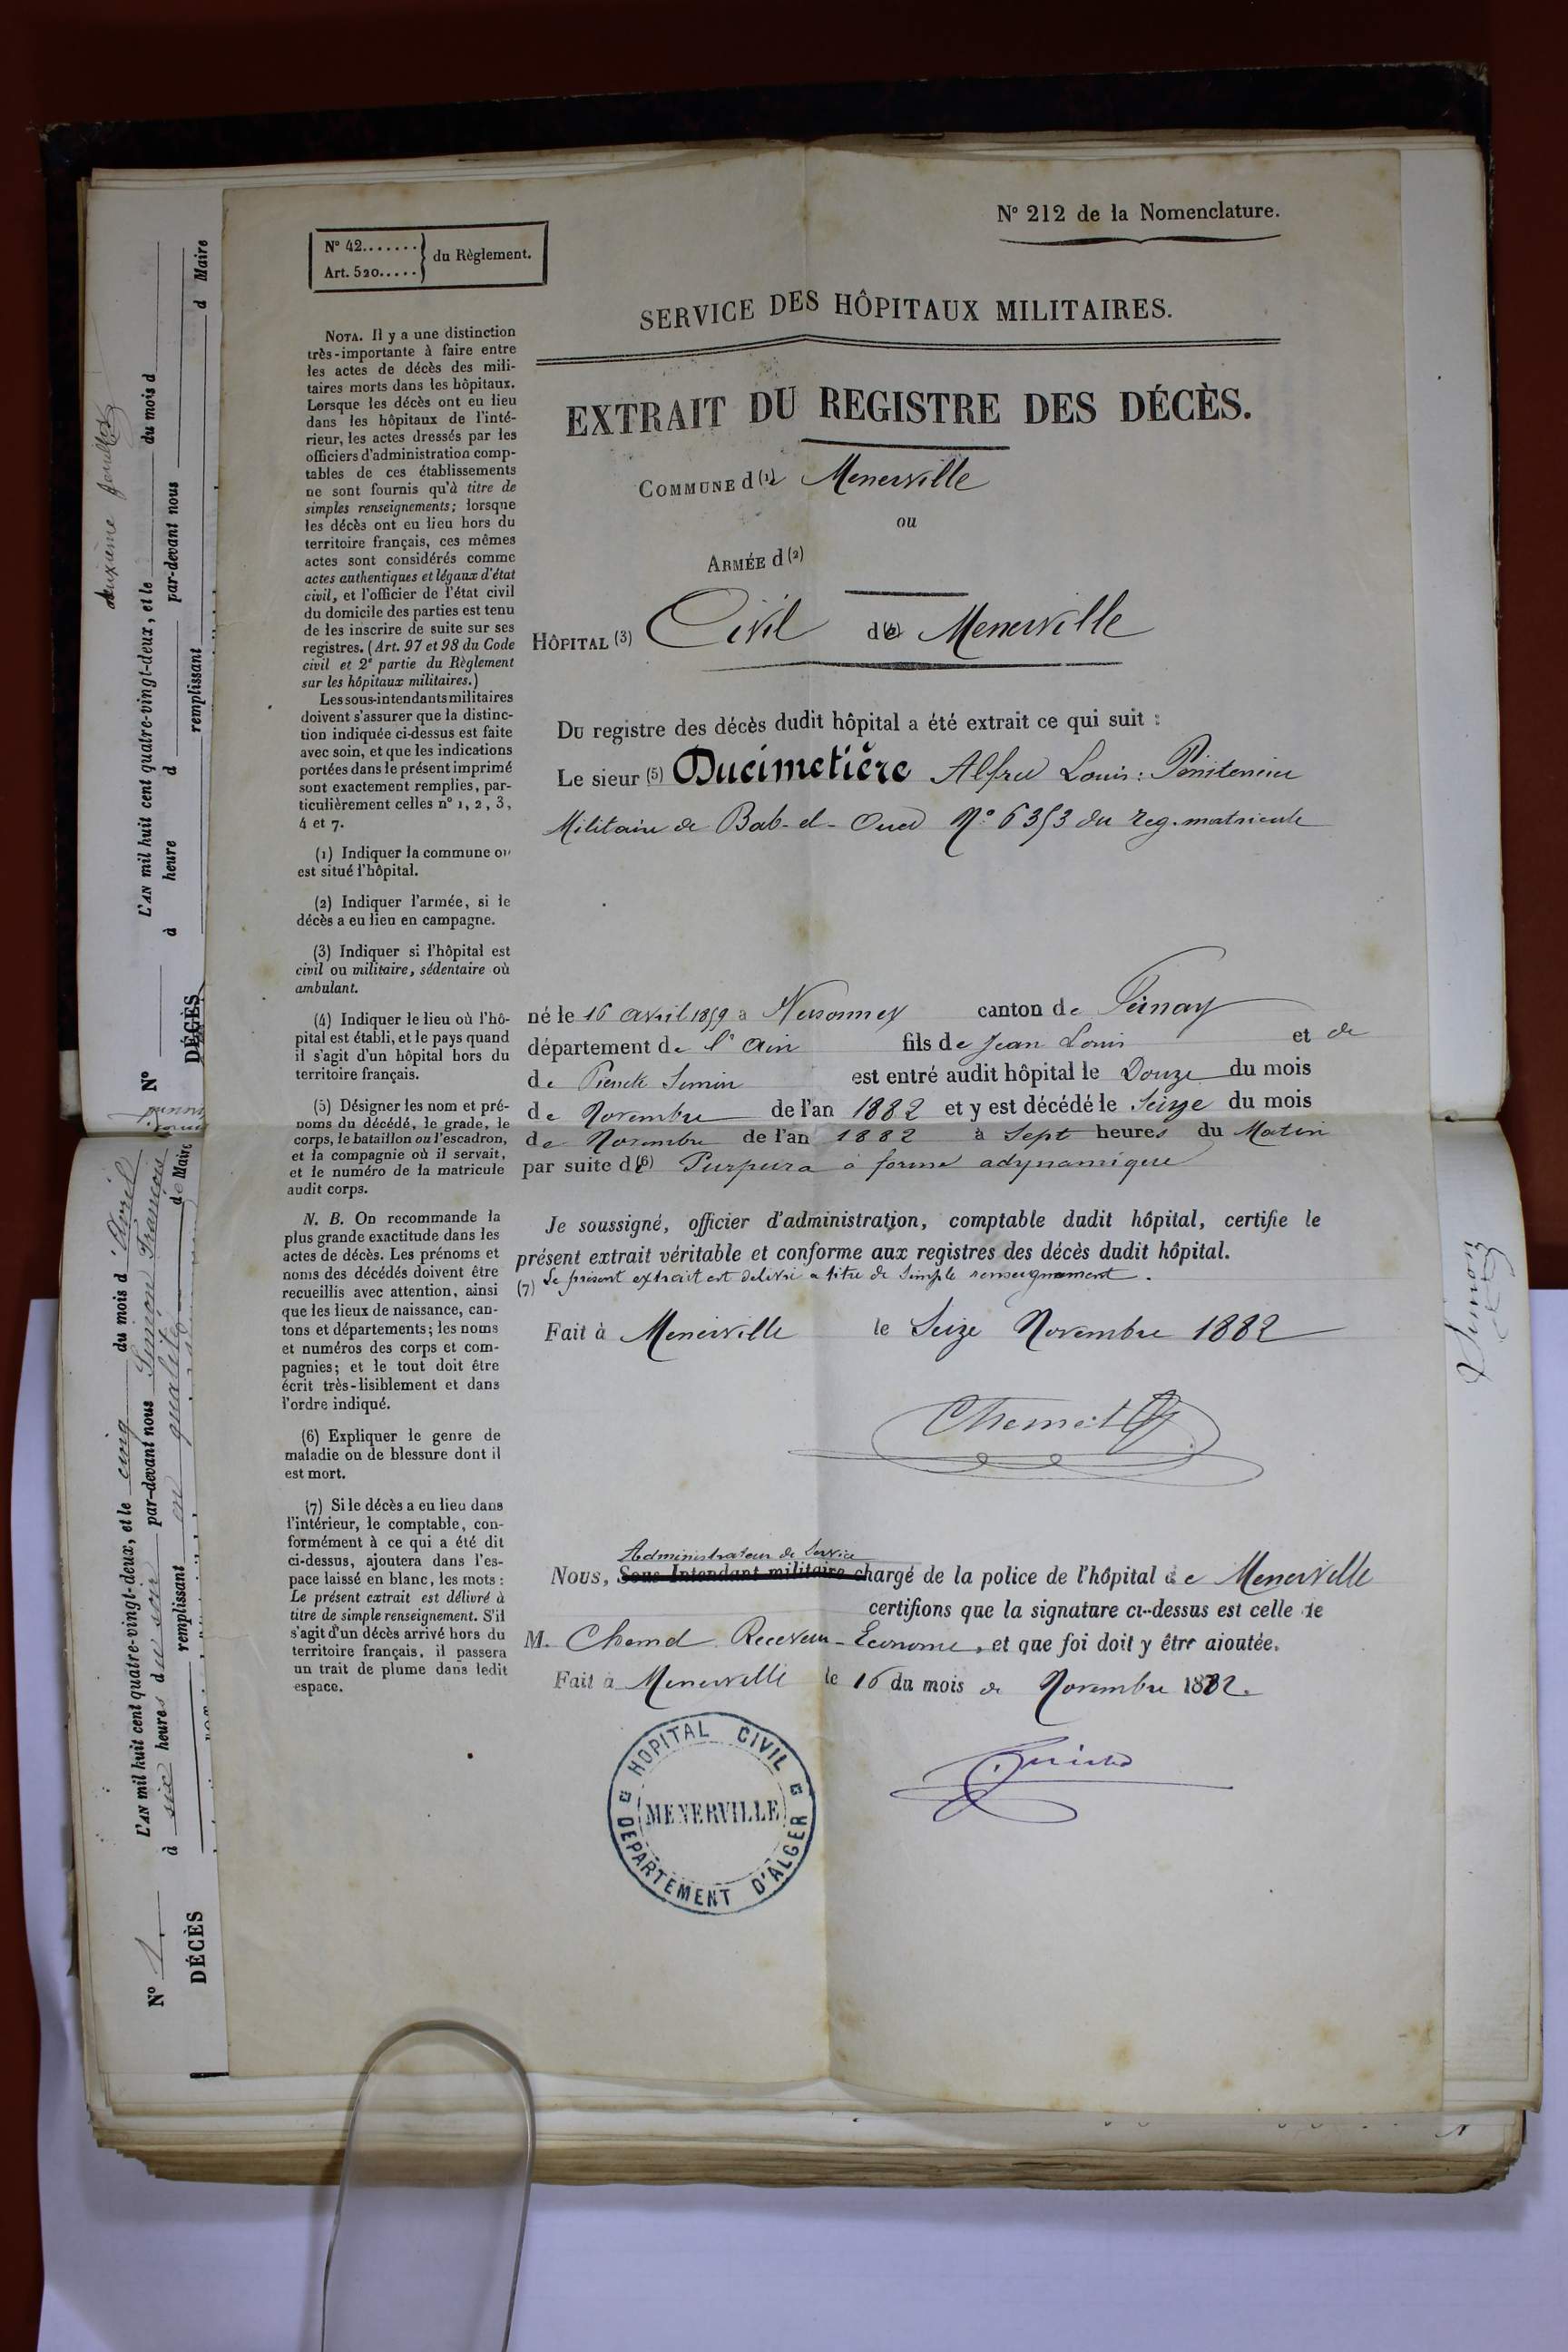 N° 212 de la Nomenclature.
N° 42.......
Art. 520.....
du Règlement.
SERVICE DES HÔPITAUX MILITAIRES.
EXTRAIT DU REGISTRE DES DÉCÈS.
COMMUNE d (1) Menerville
ou
ARMÉE d (2)
HÔPITAL (3) Civil de Menerville
Du registre des décès dudit hôpital a été extrait ce qui suit :
Le sieur (5) Ducimetière Alfred Louis : Pénitencier
Militaire de Bab-el-Oued N° 6353 du reg. matricule
né le 16 avril 1859 à canton de
département de l'Ain fils de Jean Louis et de
de est entré audit hôpital le Douze du mois
de Novembre de l'an 1882 et y est décédé le Seize du mois
de Novembre de l'an 1882 à Sept heures du Matin
par suite d (6) Purpura à forme adynamique
Je soussigné, officier d'administration, comptable dudit hôpital, certifie le
présent extrait véritable et conforme aux registres des décès dudit hôpital.
(7) Le présent extrait est délivré a titre de simple renseignement.
Fait à Menerville le Seize Novembre 1882
Administrateur de Service
Nous, Sous-Intendant militaire chargé de la police de l'hôpital de Menerville
certifions que la signature ci-dessus est celle de
M. Receveur-Econome, et que foi doit y être ajoutée.
Fait à Menerville le 16 du mois de Novembre 1882.
HOPITAL CIVIL
MENERVILLE
DEPARTEMENT D'ALGER
NOTA. Il y a une distinction
très-importante à faire entre
les actes de décès des mili-
taires morts dans les hôpitaux.
Lorsque les décès ont eu lieu
dans les hôpitaux de l'inté-
rieur, les actes dressés par les
officiers d'administration comp-
tables de ces établissements
ne sont fournis qu'à titre de
simples renseignements; lorsque
les décès ont eu lieu hors du
territoire français, ces mêmes
actes sont considérés comme
actes authentiques et légaux d'état
civil, et l'officier de l'état civil
du domicile des parties est tenu
de les inscrire de suite sur ses
registres. (Art. 97 et 98 du Code
civil et 2e partie du Règlement
sur les hôpitaux militaires.)
Les sous-intendants militaires
doivent s'assurer que la distinc-
tion indiquée ci-dessus est faite
avec soin, et que les indications
portées dans le présent imprimé
sont exactement remplies, par-
ticulièrement celles n° 1, 2, 3,
4 et 7.
(1) Indiquer la commune où
est situé l'hôpital.
(2) Indiquer l'armée, si le
décès a eu lieu en campagne.
(3) Indiquer si l'hôpital est
civil ou militaire, sédentaire où
ambulant.
(4) Indiquer le lieu où l'hô-
pital est établi, et le pays quand
il s'agit d'un hôpital hors du
territoire français.
(5) Désigner les nom et pré-
noms du décédé, le grade, le
corps, le bataillon ou l'escadron,
et la compagnie où il servait,
et le numéro de la matricule
audit corps.
N. B. On recommande la
plus grande exactitude dans les
actes de décès. Les prénoms et
noms des décédés doivent être
recueillis avec attention, ainsi
que les lieux de naissance, can-
tons et départements; les noms
et numéros des corps et com-
pagnies; et le tout doit être
écrit très-lisiblement et dans
l'ordre indiqué.
(6) Expliquer le genre de
maladie ou de blessure dont il
est mort.
(7) Si le décès a eu lieu dans
l'intérieur, le comptable, con-
formément à ce qui a été dit
ci-dessus, ajoutera dans l'es-
pace laissé en blanc, les mots :
Le présent extrait est délivré à
titre de simple renseignement. S'il
s'agit d'un décès arrivé hors du
territoire français, il passera
un trait de plume dans ledit
espace.
N° DÉCÈS
L'AN mil huit cent quatre-vingt-deux, et le du mois d
à heure d par-devant nous
remplissant d Maire
N° 1. DÉCÈS
L'AN mil huit cent quatre-vingt-deux, et le cinq du mois d'Avril
à six heures du soir par-devant nous Simon François
remplissant en qualité de Maire
Simon